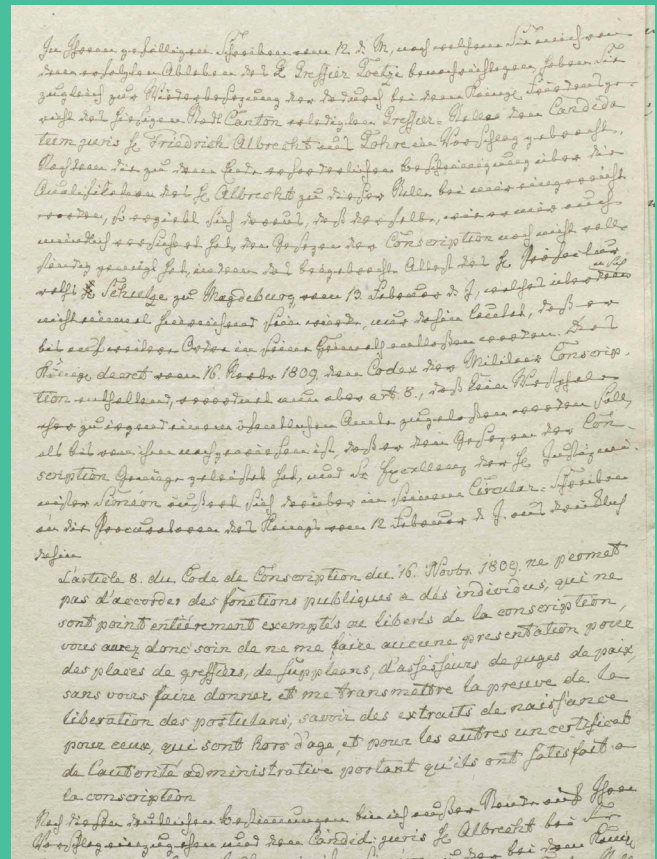 In Ihrem gefälligen Schreiben vom 12. d. M., nach welchem Sie mich von
dem erfolgten Ableben des H. Greffier Goetze benachrichtigen, haben Sie
zugleich zur Wiederbesetzung der dadurch bei dem Königl. Friedensge-
richt des hiesigen Stadt Canton erledigten Greffier-Stelle den Candida-
tum juris H. Friedrich Albrecht aus Lohre in Vorschlag gebracht.
Nachdem die zu dem Ende erforderlichen Bescheinigung über die
Qualification des H. Albrecht zu dieser Stelle bei mir eingereicht
worden, so ergiebt sich daraus, daß derselbe, wie er mir auch
mündlich versichert hat, den Gesetzen der Conscription noch nicht voll-
ständig genügt hat, indem das beigebrachte Attest des H.
H. Schulze zu Magdeburg vom 13. Februar d. J., welches überdem
nicht einmal hinreichend sein würde, nur dahin lautet, daß er
bis auf weitere Ordre in seine Heimath entlassen worden. Das
Königl. decret vom 16. Novbr 1809, den Codex der Militair Conscrip-
tion enthaltend, verordnet nun aber art. 8., daß kein Westphä-
zu irgend einem öffentlichen Amte zugelassen werden soll,
als bis von ihm nachgewiesen ist, daß er den Gesetzen der Con-
scription Genüge geleistet hat, und Se Excellenz der H. Justizmi-
nister Siméon äußert sich darüber in seinem Circular-Schreiben
an die Procuratoren des Königs vom 12 Februar d. J. ausdrücklich
dahin
L'article 8. du Code de Conscription du 16. Novbr. 1809. ne permet
pas d'accorder des fonctions publiques a des individus, qui ne
sont point entiérement exemptés ou liberés de la conscription,
vous aurez donc soin de ne me faire aucune presentation pour
des places de greffiers, de suppleans, d'assesseurs de juges de paix,
sans vous faire donner et me transmettre la preuve de la
liberation des postulans, savoir des extraits de naissance
pour ceux, qui sont hors d'age, et pour les autres un certificat
de l'autorité administrative portant qu'ils ont satisfait a
la conscription
Nach diesen deutlichen Bestimmungen bin ich außer Stande auf Ihren
Vorschlag einzugehen und den Candid: juris H. Albrecht bei Sr